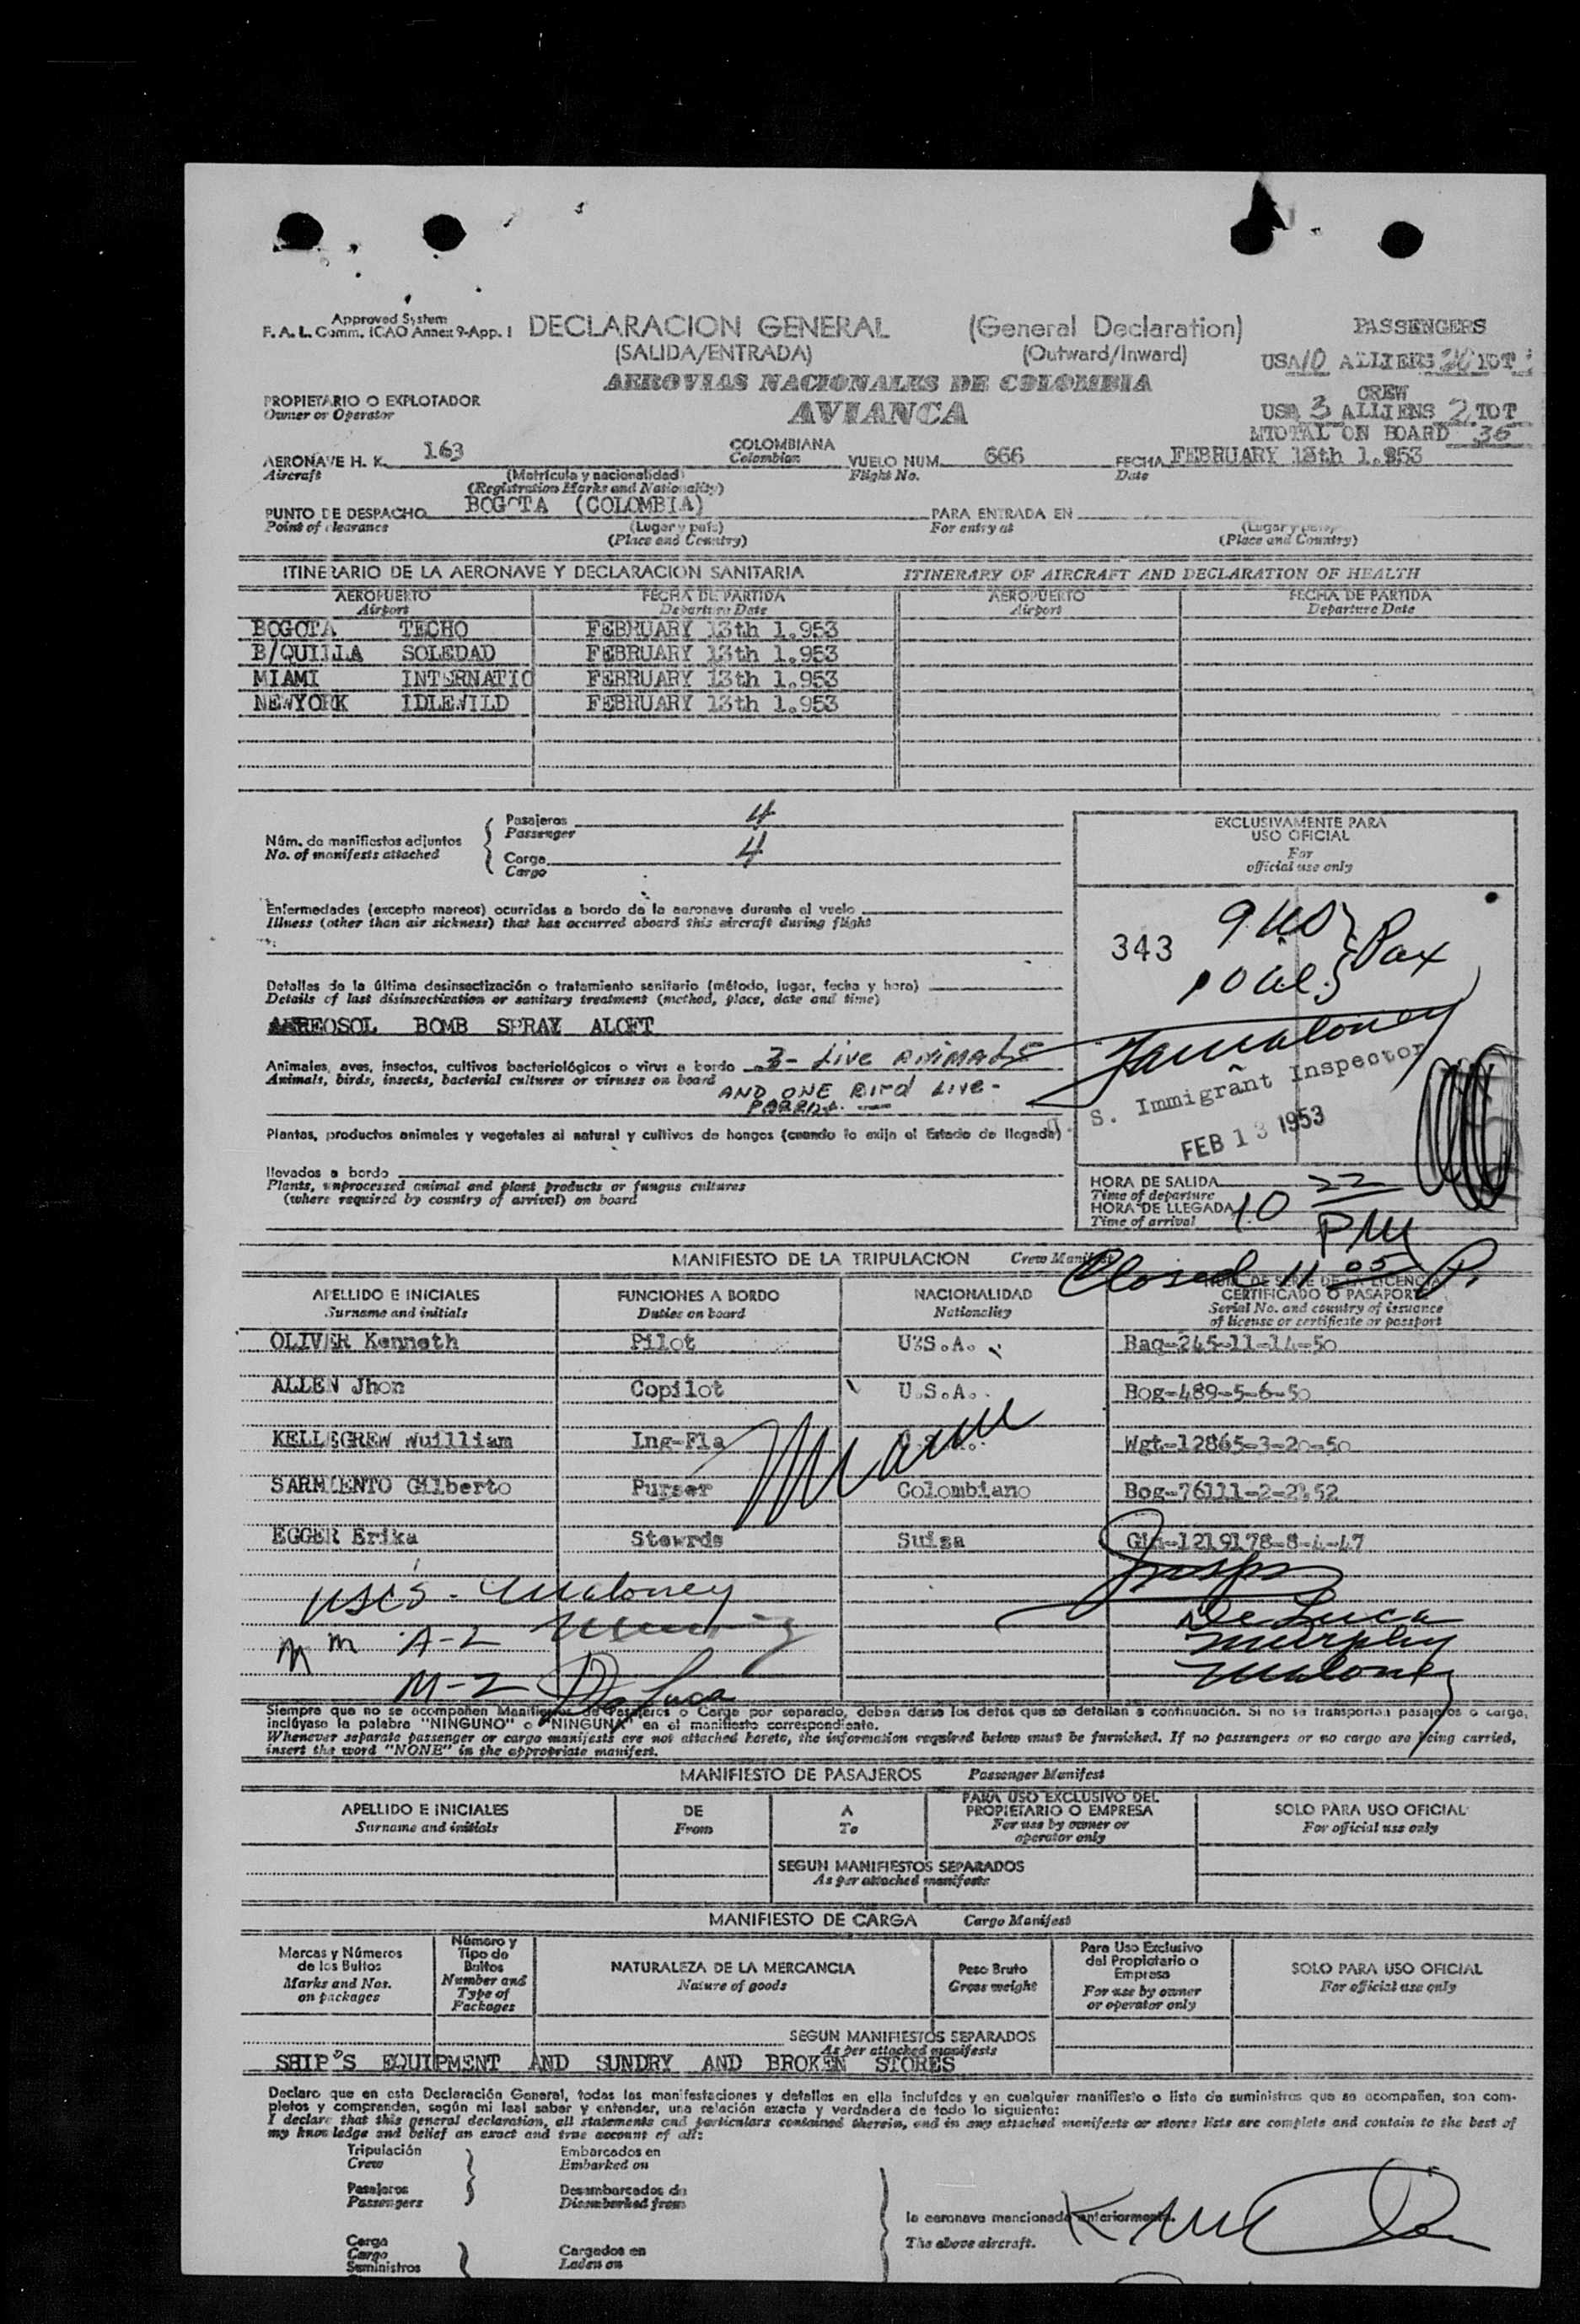 Approved System
F. A. L. Comm. ICAO Annex 9-App. 1
DECLARACION GENERAL (General Declaration)
(SALIDA/ENTRADA) (Outward/Inward)
PASSENGERS
USA 10 ALLIENS TOT
AEROVIAS NACIONALES DE COLOMBIA
AVIANCA
CREW
USA 3 ALLIENS 2 TOT
TOTAL ON BOARD 36
PROPIETARIO O EXPLOTADOR
Owner or Operator
AERONAVE H. K. 163 COLOMBIANA VUELO NUM. 666 FECHA FEBRUARY 13th 1.953
Aircraft (Matrícula y nacionalidad) Colombian Flight No. Date
(Registration Marks and Nationality)
PUNTO DE DESPACHO BOGOTA (COLOMBIA) PARA ENTRADA EN
Point of clearance (Lugar y país) For entry at (Lugar y país)
(Place and Country) (Place and Country)
ITINERARIO DE LA AERONAVE Y DECLARACION SANITARIA ITINERARY OF AIRCRAFT AND DECLARATION OF HEALTH
AEROPUERTO FECHA DE PARTIDA AEROPUERTO FECHA DE PARTIDA
Airport Departure Date Airport Departure Date
BOGOTA TECHO FEBRUARY 13th 1.953
B/QUILLA SOLEDAD FEBRUARY 13th 1.953
MIAMI INTERNATIO FEBRUARY 13th 1.953
NEWYORK IDLEWILD FEBRUARY 13th 1.953
Núm. de manifiestos adjuntos
No. of manifests attached
Pasajeros 4
Passenger
Carga 4
Cargo
EXCLUSIVAMENTE PARA
USO OFICIAL
For
official use only
Enfermedades (excepto mareos) ocurridas a bordo de la aeronave durante el vuelo
Illness (other than air sickness) that has occurred aboard this aircraft during flight
343 9 US
Pax
Detalles de la última desinsectización o tratamiento sanitario (método, lugar, fecha y hora)
Details of last disinsectization or sanitary treatment (method, place, date and time)
AEREOSOL BOMB SPRAY ALOFT
Animales, aves, insectos, cultivos bacteriológicos o virus a bordo 3- Live ANIMALS
Animals, birds, insects, bacterial cultures or viruses on board AND ONE Bird Live-
S. Immigrant Inspector
FEB 13 1953
Plantas, productos animales y vegetales al natural y cultivos de hongos (cuando lo exija el Estado de llegada)
llevados a bordo
Plants, unprocessed animal and plant products or fungus cultures
(where required by country of arrival) on board
HORA DE SALIDA
Time of departure
HORA DE LLEGADA 10 22 PM
Time of arrival
MANIFIESTO DE LA TRIPULACION Crew Manifest Closed 11 05 P.
APELLIDO E INICIALES FUNCIONES A BORDO NACIONALIDAD NUM. DE SERIE DE LA LICENCIA
CERTIFICADO O PASAPORT
Surname and initials Duties on board Nationality Serial No. and country of issuance
of license or certificate or passport
OLIVER Kenneth Pilot U.S.A. Bag-245-11-14-50
ALLEN Jhon Copilot U.S.A. Bog-489-5-6-50
KELLSGREW Wuilliam Ing-Fla Wgt-12865-3-20-50
SARMIENTO Gilberto Purser Colombiano Bog-76111-2-2-52
EGGER Erika Stewrds Suiza Gin-1219178-8-4-47
USCS - Maloney
De Luca
A-2 Murphy
M-2 De Luca Maloney
Siempre que no se acompañen Manifiestos de Pasajeros o Carga por separado, deben darse los datos que se detallan a continuación. Si no se transportan pasajeros o carga,
inclúyase la palabra "NINGUNO" o "NINGUNA" en el manifiesto correspondiente.
Whenever separate passenger or cargo manifests are not attached hereto, the information required below must be furnished. If no passengers or no cargo are being carried,
insert the word "NONE" in the appropriate manifest.
MANIFIESTO DE PASAJEROS Passenger Manifest
APELLIDO E INICIALES DE A PARA USO EXCLUSIVO DEL
PROPIETARIO O EMPRESA SOLO PARA USO OFICIAL
Surname and initials From To For use by owner or
operator only For official use only
SEGUN MANIFIESTOS SEPARADOS
As per attached manifests
MANIFIESTO DE CARGA Cargo Manifest
Marcas y Números
de los Bultos
Marks and Nos.
on packages
Número y
Tipo de
Bultos
Number and
Type of
Packages
NATURALEZA DE LA MERCANCIA
Nature of goods
Peso Bruto
Gross weight
Para Uso Exclusivo
del Propietario o
Empresa
For use by owner
or operator only
SOLO PARA USO OFICIAL
For official use only
SEGUN MANIFIESTOS SEPARADOS
As per attached manifests
SHIP'S EQUIPMENT AND SUNDRY AND BROKEN STORES
Declaro que en esta Declaración General, todas las manifestaciones y detalles en ella incluídos y en cualquier manifiesto o lista de suministros que se acompañen, son com-
pletos y comprenden, según mi leal saber y entender, una relación exacta y verdadera de todo lo siguiente:
I declare that this general declaration, all statements and particulars contained therein, and in any attached manifests or stores lists are complete and contain to the best of
my knowledge and belief an exact and true account of all:
Tripulación Embarcados en
Crew Embarked on
Pasajeros Desembarcados de
Passengers Disembarked from
la aeronave mencionada anteriormente.
The above aircraft.
Carga Cargados en
Cargo Laden on
Suministros